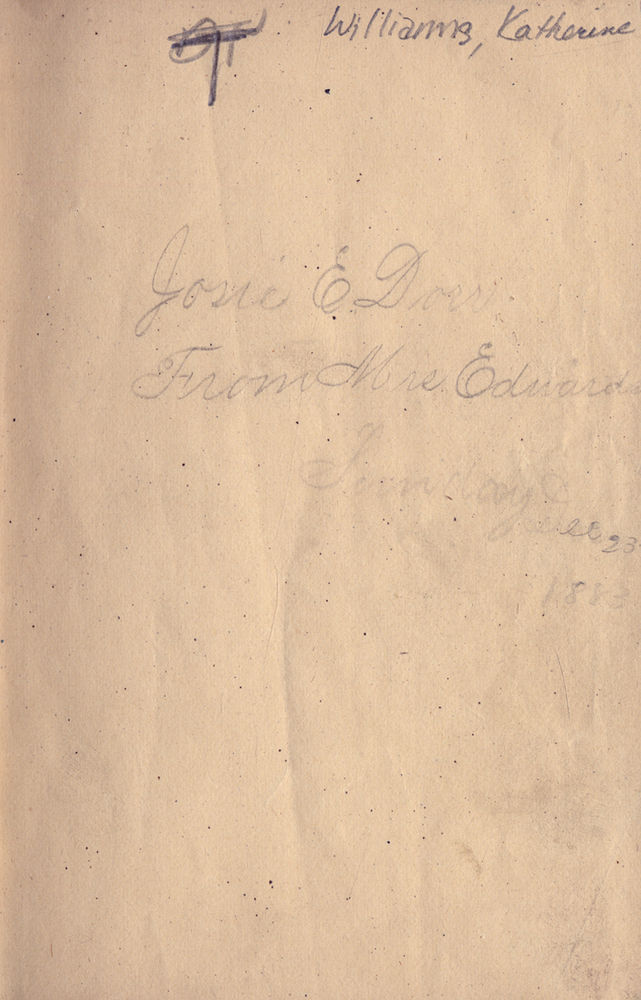 Williams, Katherine
Josie E Dorr
From Mrs Edwards
Sunday
Dec 23
1883